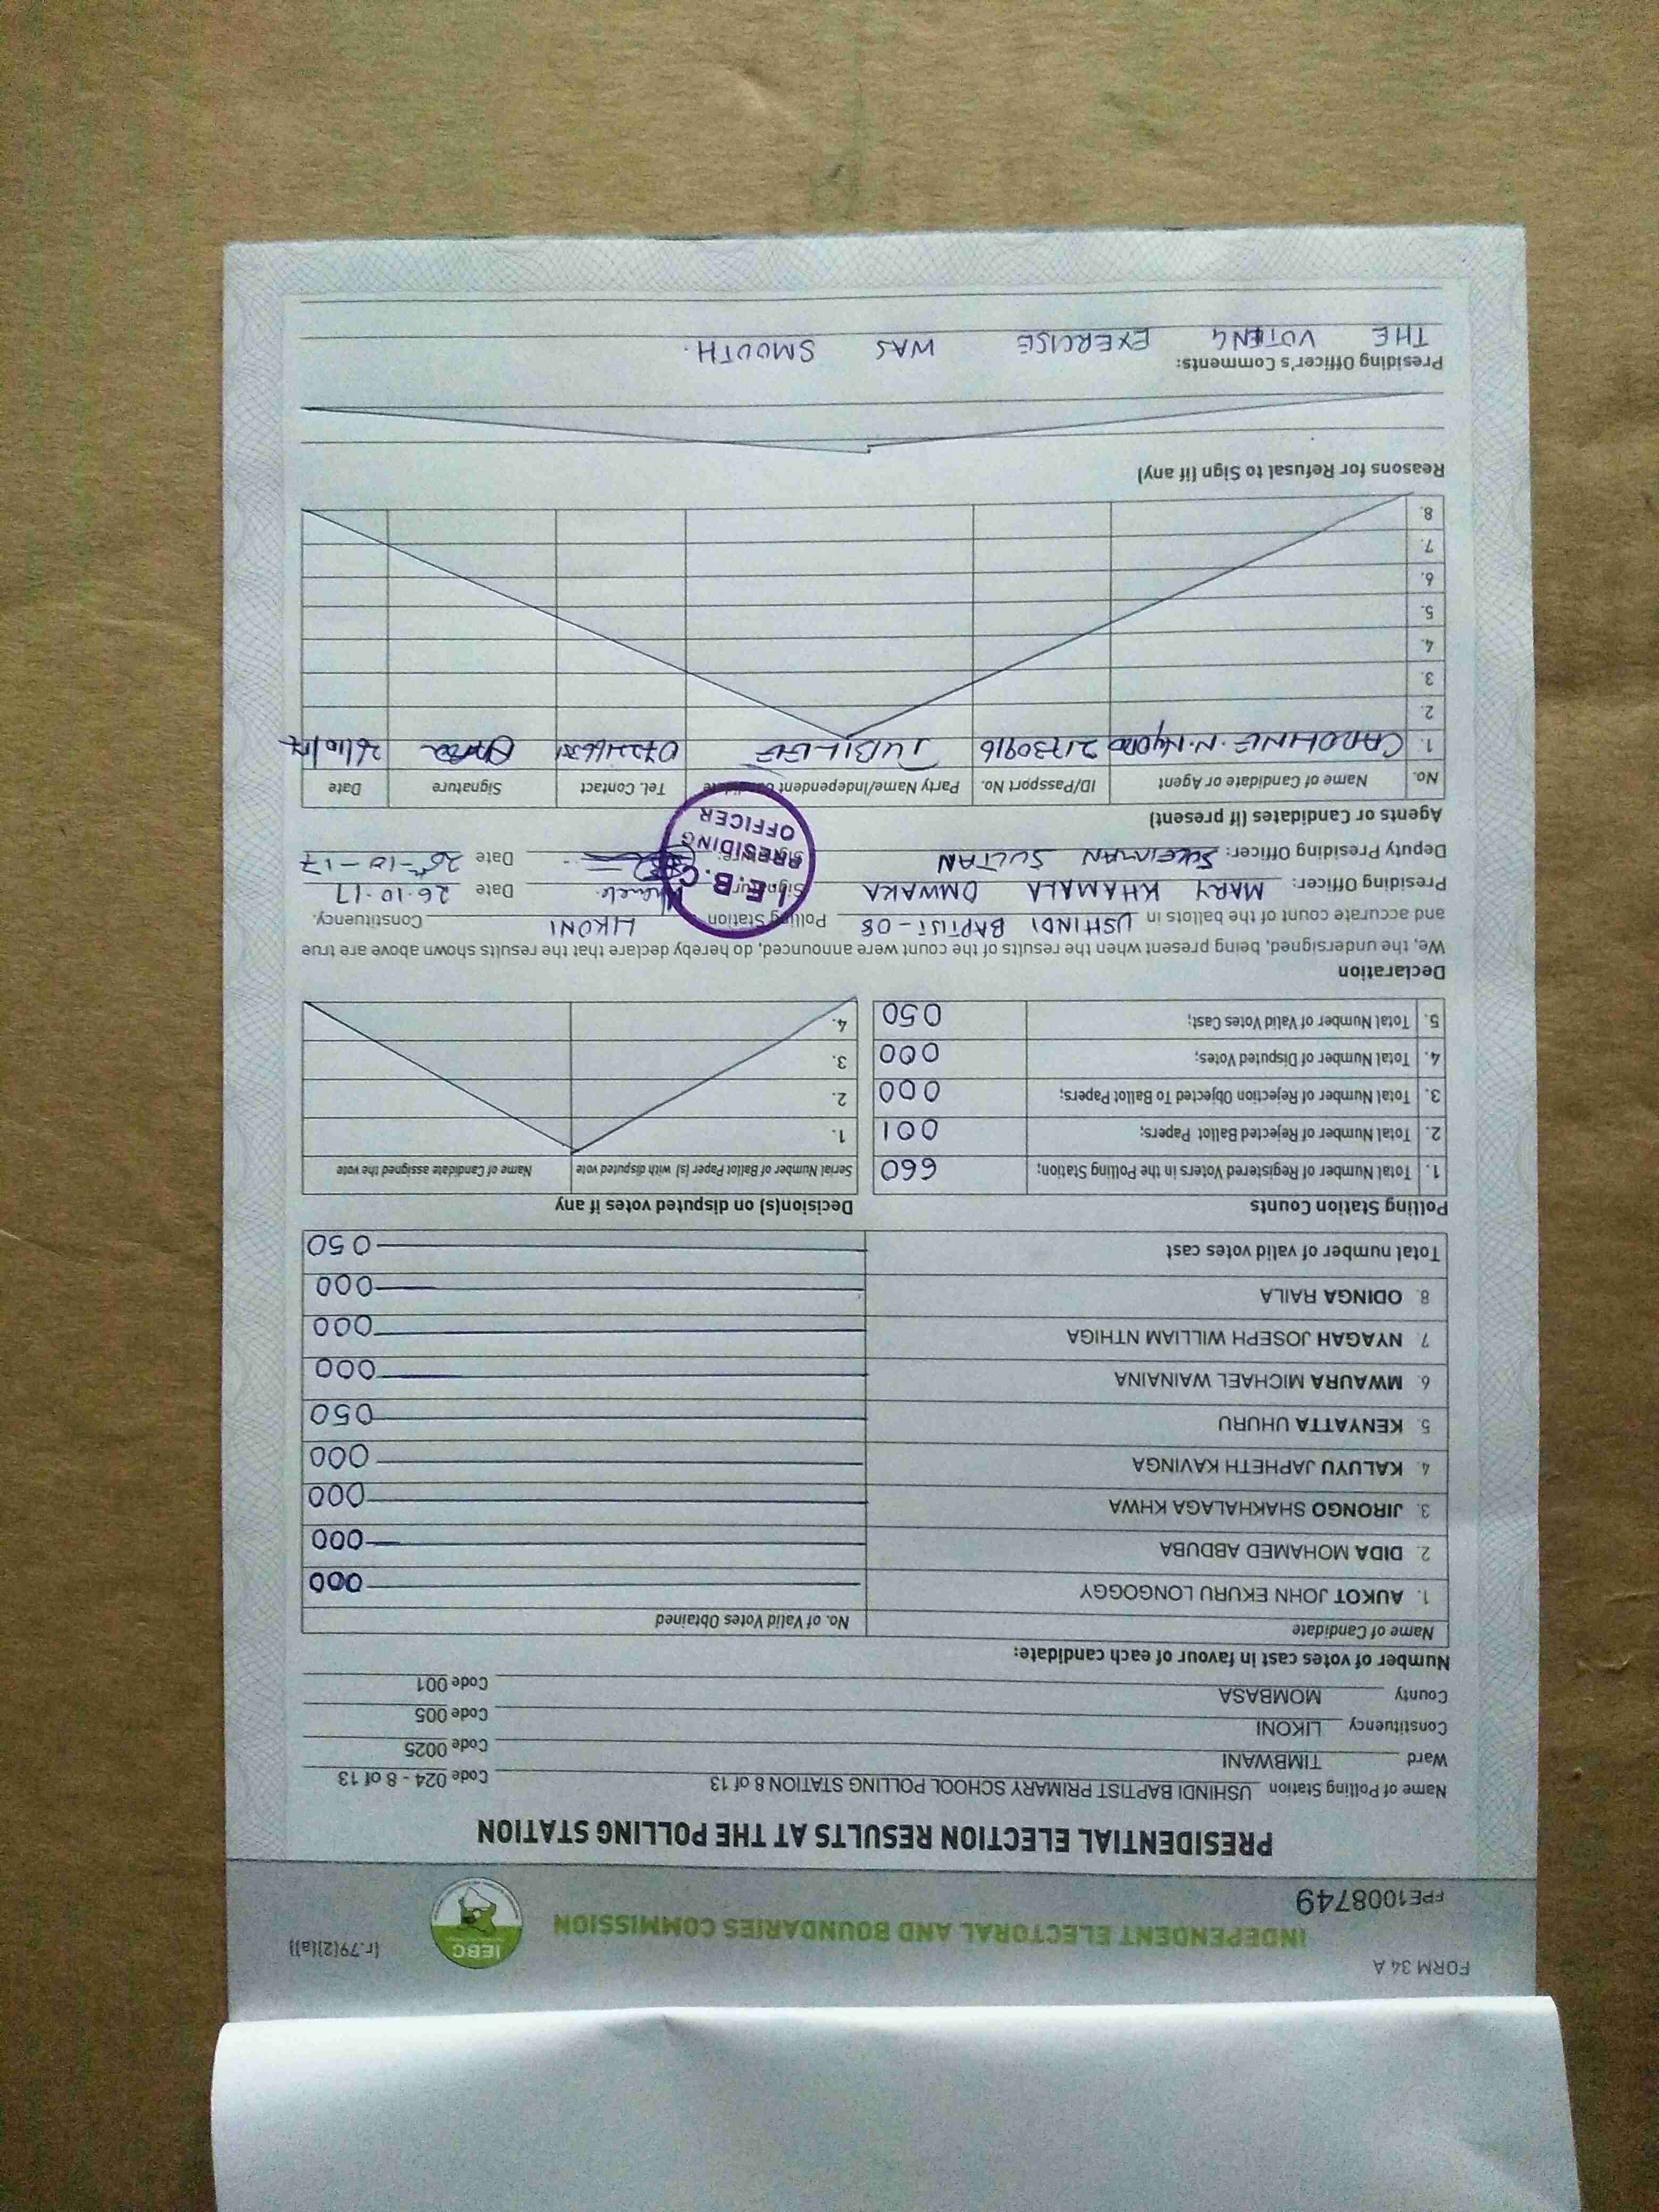 FORM 34 A
(r.79(2)(a))
INDEPENDENT ELECTORAL AND BOUNDARIES COMMISSION
IEBC
FPE1008749
PRESIDENTIAL ELECTION RESULTS AT THE POLLING STATION
Name of Polling Station USHINDI BAPTIST PRIMARY SCHOOL POLLING STATION 8 of 13 Code 024 - 8 of 13
Ward TIMBWANI Code 0025
Constituency LIKONI Code 005
County MOMBASA Code 001
Number of votes cast in favour of each candidate:
Name of Candidate No. of Valid Votes Obtained
1. AUKOT JOHN EKURU LONGOGGY 000
2. DIDA MOHAMED ABDUBA 000
3. JIRONGO SHAKHALAGA KHWA 000
4. KALUYU JAPHETH KAVINGA 000
5. KENYATTA UHURU 050
6. MWAURA MICHAEL WAINAINA 000
7 NYAGAH JOSEPH WILLIAM NTHIGA 000
8 ODINGA RAILA 000
Total number of valid votes cast 050
Polling Station Counts Decision(s) on disputed votes if any
1. Total Number of Registered Voters in the Polling Station; 660 Serial Number of Ballot Paper (s) with disputed vote Name of Candidate assigned the vote
2. Total Number of Rejected Ballot Papers; 001 1.
3. Total Number of Rejection Objected To Ballot Papers; 000 2.
4. Total Number of Disputed Votes; 000 3.
5. Total Number of Valid Votes Cast; 050 4.
Declaration
We, the undersigned, being present when the results of the count were announced, do hereby declare that the results shown above are true
and accurate count of the ballots in USHINDI BAPTIST - 08 Polling Station LIKONI Constituency.
Presiding Officer: MARY KHAMALA OMWAKA Signature Date 26.10.17
Deputy Presiding Officer: SULEIMAN SULTAN Signature: Date 26-10-17
I.E.B.C
PRESIDING
OFFICER
Agents or Candidates (if present)
No. Name of Candidate or Agent ID/Passport No. Party Name/Independent Candidate Tel. Contact Signature Date
1. CAROLINE.N. 21730916 JUBILEE 26/10/17
2.
3.
4.
5.
6.
7.
8.
Reasons for Refusal to Sign (if any)
Presiding Officer's Comments:
THE VOTING EXERCISE WAS SMOOTH.